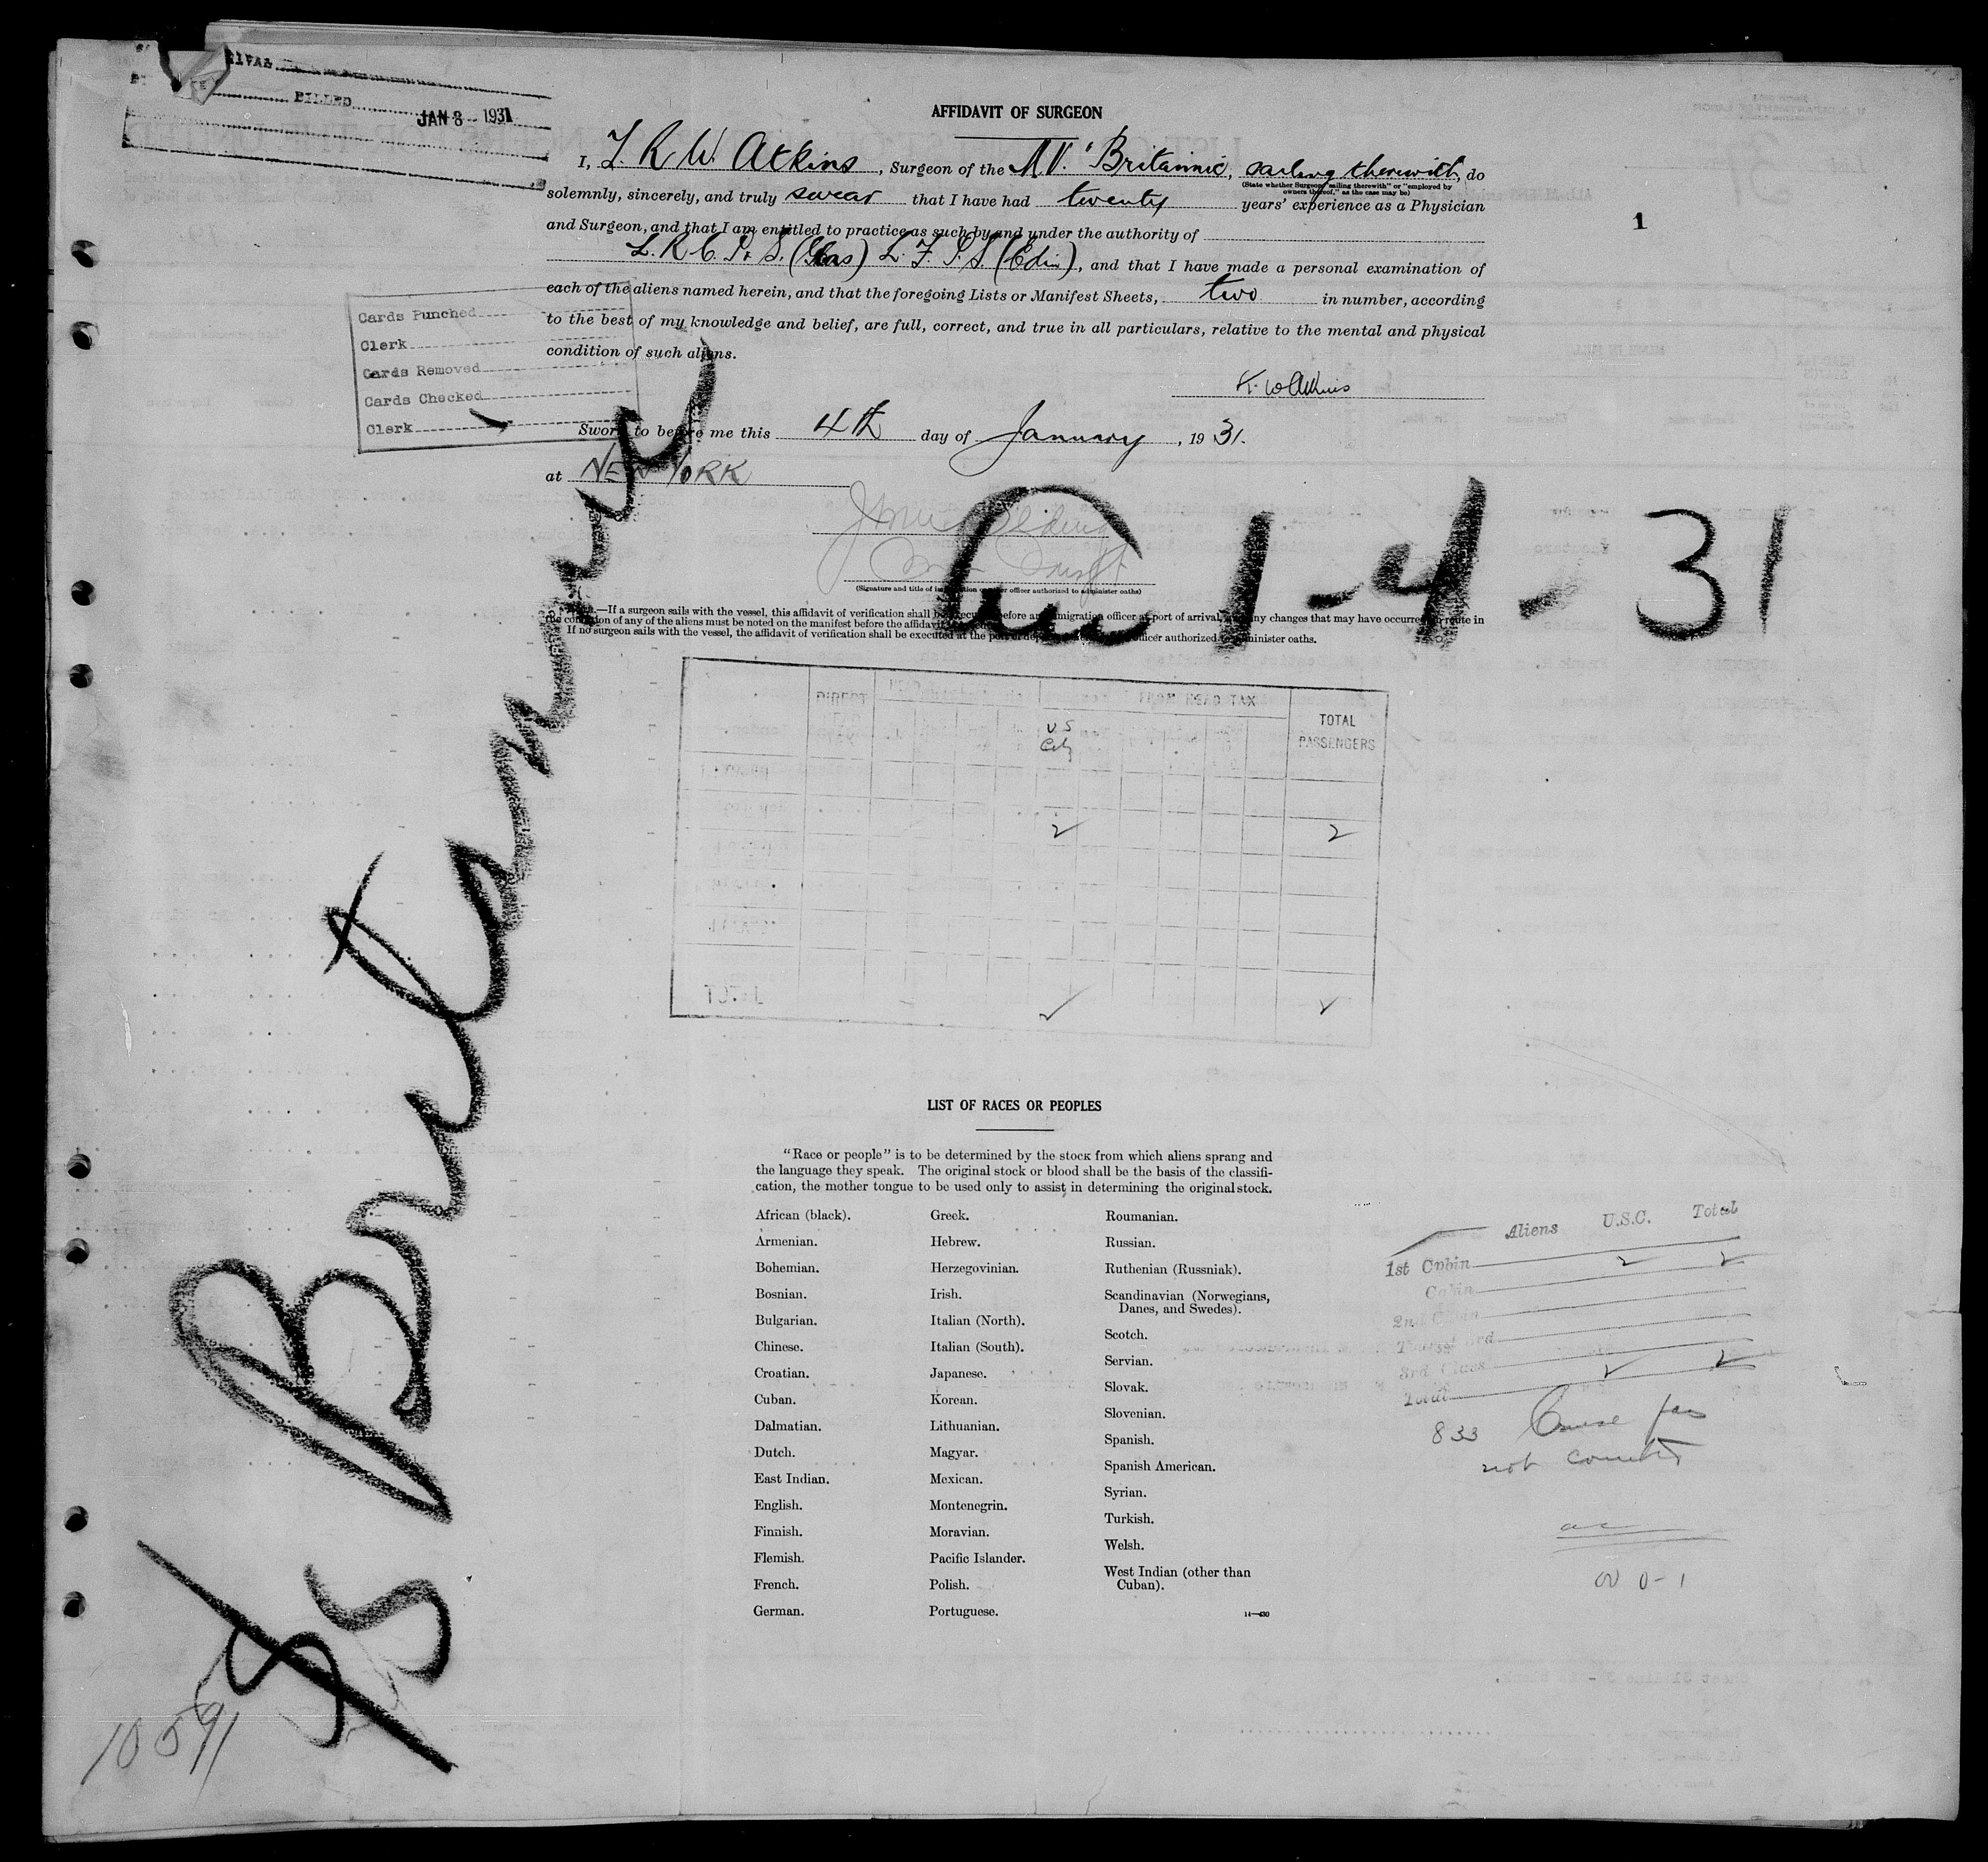 BILLED
JAN 8 - 1931
AFFIDAVIT OF SURGEON
I, R W. Atkins, Surgeon of the M.V. "Britannic, sailing therewith, do
(State whether Surgeon "sailing therewith" or "employed by owners thereof," as the case may be)
solemnly, sincerely, and truly swear that I have had twenty years' experience as a Physician
and Surgeon, and that I am entitled to practice as such by and under the authority of
L. R. C. P. S. (Glas) L. F. P. S. (Edin), and that I have made a personal examination of
each of the aliens named herein, and that the foregoing Lists or Manifest Sheets, two in number, according
to the best of my knowledge and belief, are full, correct, and true in all particulars, relative to the mental and physical
condition of such aliens.
1
Cards Punched
Clerk
Cards Removed
Cards Checked
Clerk
W Atkins
Sworn to before me this 4th day of January, 1931.
at NEW YORK
(Signature and title of immigration or other officer authorized to administer oaths)
1-4-31
NOTE.—If a surgeon sails with the vessel, this affidavit of verification shall be executed before an immigration officer at port of arrival, and any changes that may have occurred en route in
the condition of any of the aliens must be noted on the manifest before the affidavit
If no surgeon sails with the vessel, the affidavit of verification shall be executed at the port of departure officer authorized to administer oaths.
SS Britannic
10591
DIRECT
FROM HEAD TAX
TOTAL PASSENGERS
U S
2 2
TOTAL
LIST OF RACES OR PEOPLES
"Race or people" is to be determined by the stock from which aliens sprang and
the language they speak. The original stock or blood shall be the basis of the classifi-
cation, the mother tongue to be used only to assist in determining the original stock.
African (black).
Armenian.
Bohemian.
Bosnian.
Bulgarian.
Chinese.
Croatian.
Cuban.
Dalmatian.
Dutch.
East Indian.
English.
Finnish.
Flemish.
French.
German.
Greek.
Hebrew.
Herzegovinian.
Irish.
Italian (North).
Italian (South).
Japanese.
Korean.
Lithuanian.
Magyar.
Mexican.
Montenegrin.
Moravian.
Pacific Islander.
Polish.
Portuguese.
Roumanian.
Russian.
Ruthenian (Russniak).
Scandinavian (Norwegians,
Danes, and Swedes).
Scotch.
Servian.
Slovak.
Slovenian.
Spanish.
Spanish American.
Syrian.
Turkish.
Welsh.
West Indian (other than
Cuban).
14—430
Aliens U.S.C. Total
1st Cabin 2 2
Cabin
2nd Cabin
Tourist 3rd
3rd Class
Total 2 2
833 Cruise pas
not counted